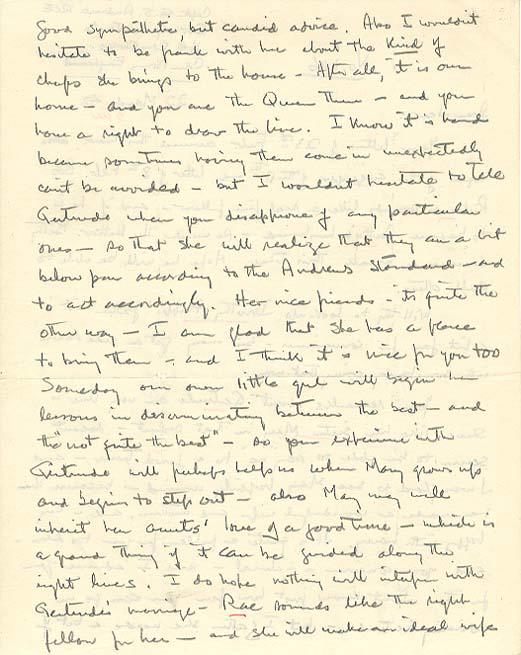 Good sympathetic, but candid advice. Also I wouldn't
hesitate to be frank with her about the kind of
chaps she brings to the house - After all, it is our
home - and you are the Queen there - and you
have a right to draw the line. I know it is hard
because sometimes having them come in unexpectedly
can't be avoided - but I wouldn't hesitate to tell
Gertrude when you disapprove of any particular
ones - so that she will realize that they are a bit
below par according to the Andrews Standard - and
to act accordingly. Her nice friends - its quite the
other way - I am glad that she has a place
to bring them - and I think it is nice for you too
Someday our own little girl will begin her
lessons in descriminating between the best - and
the "not quite the best" - so your experience with
Gertrude will perhaps help us when Mary grows up
and begins to step out - also Mary may well
inherit her aunts' love of a good time - which is
a grand thing if it can be guided along the
right lines. I do hope nothing will interfere with
Gertrude's marriage - Rae sounds like the right
fellow for her - and she will make an ideal wife